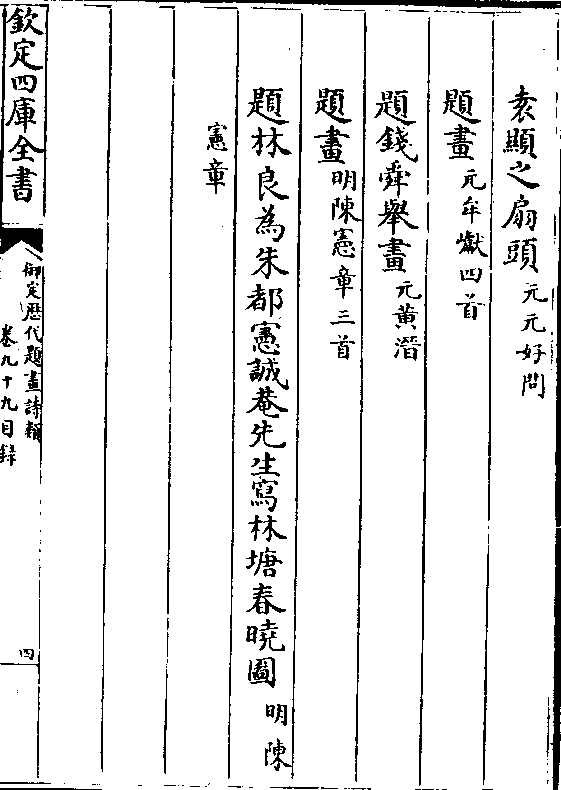 袁顯之扇頭元元好問
題畫元牟巘四首
題錢舜舉畫元黄溍
題畫明陳憲章三首
題林良為朱都憲誠菴先生寫林塘春曉圖明陳
憲章
欽定四庫全書
御定歴代題畫詩類
卷九十九目録
四